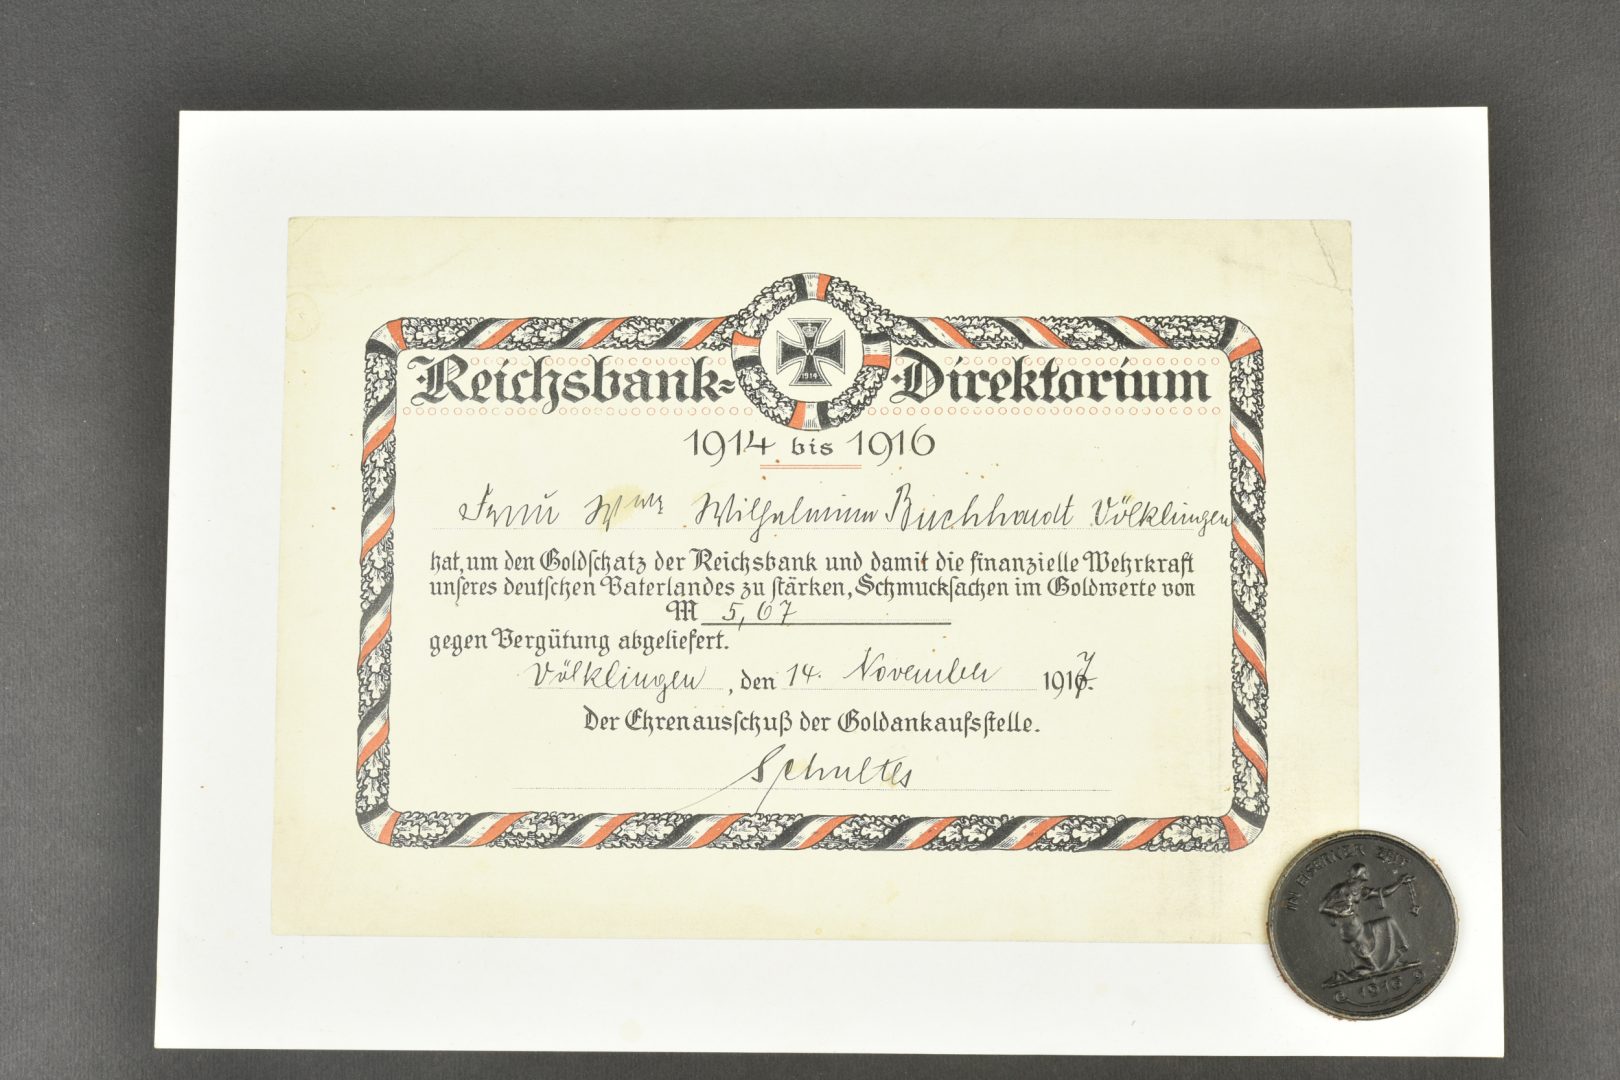 Reichsbank-Direktorium
W
1914
1914 bis 1916
Frau Wwe Wilhelmine Buchhardt Völklingen
hat, um den Goldschatz der Reichsbank und damit die finanzielle Wehrkraft
unseres deutschen Vaterlandes zu stärken, Schmucksachen im Goldwerte von
M 5,67
gegen Vergütung abgeliefert.
Völklingen, den 14. November 1917.
Der Ehrenausschuß der Goldankaufsstelle.
Schultes
IN EISERNER ZEIT
1916